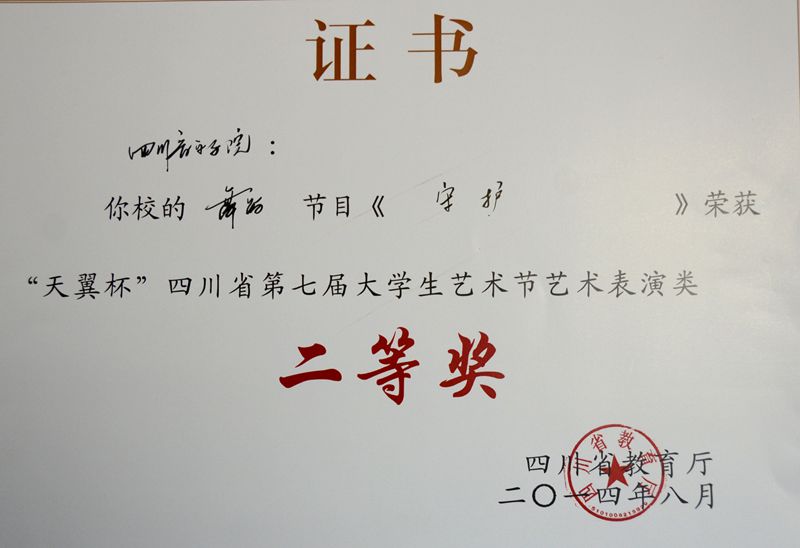 证书
四川音乐学院：
你校的 舞蹈 节目《 守护 》荣获
“天翼杯”四川省第七届大学生艺术节艺术表演类
二等奖
四川省教育厅
二〇一四年八月
四川省教育厅